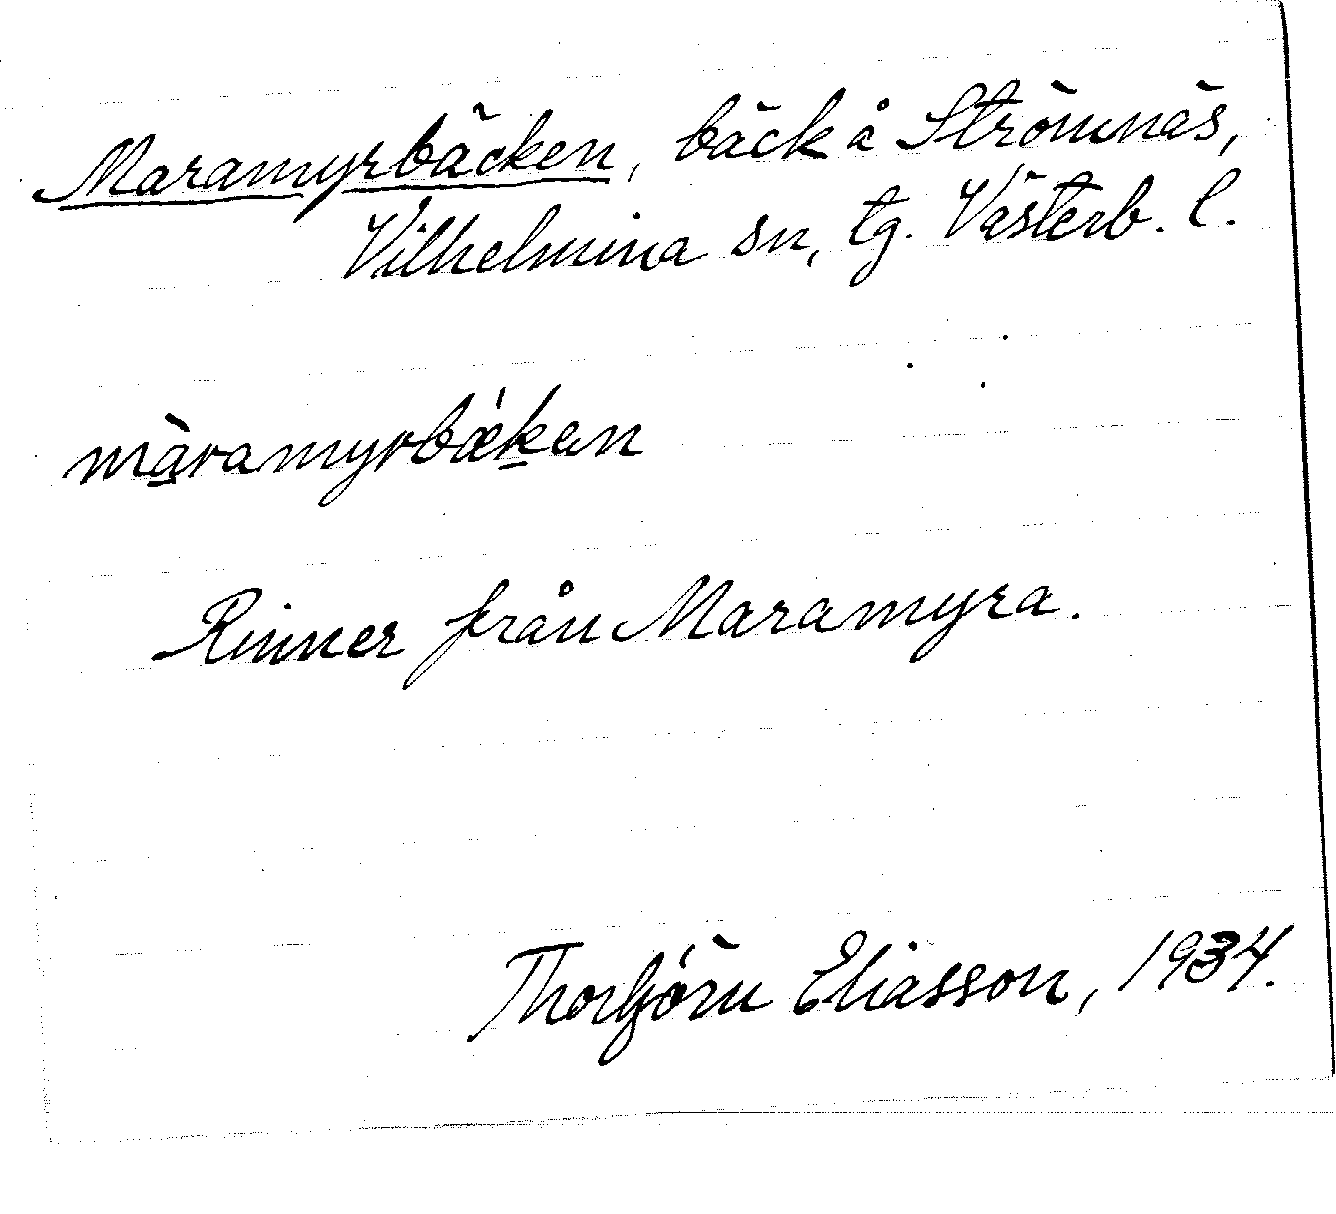 Maramyrbäcken, bäck å Strömnäs,
Vilhelmina sn, tg. Västerb. l.
màramyrbǽkan
Rinner från Maramyra.
Thorbjörn Eliasson, 1934.